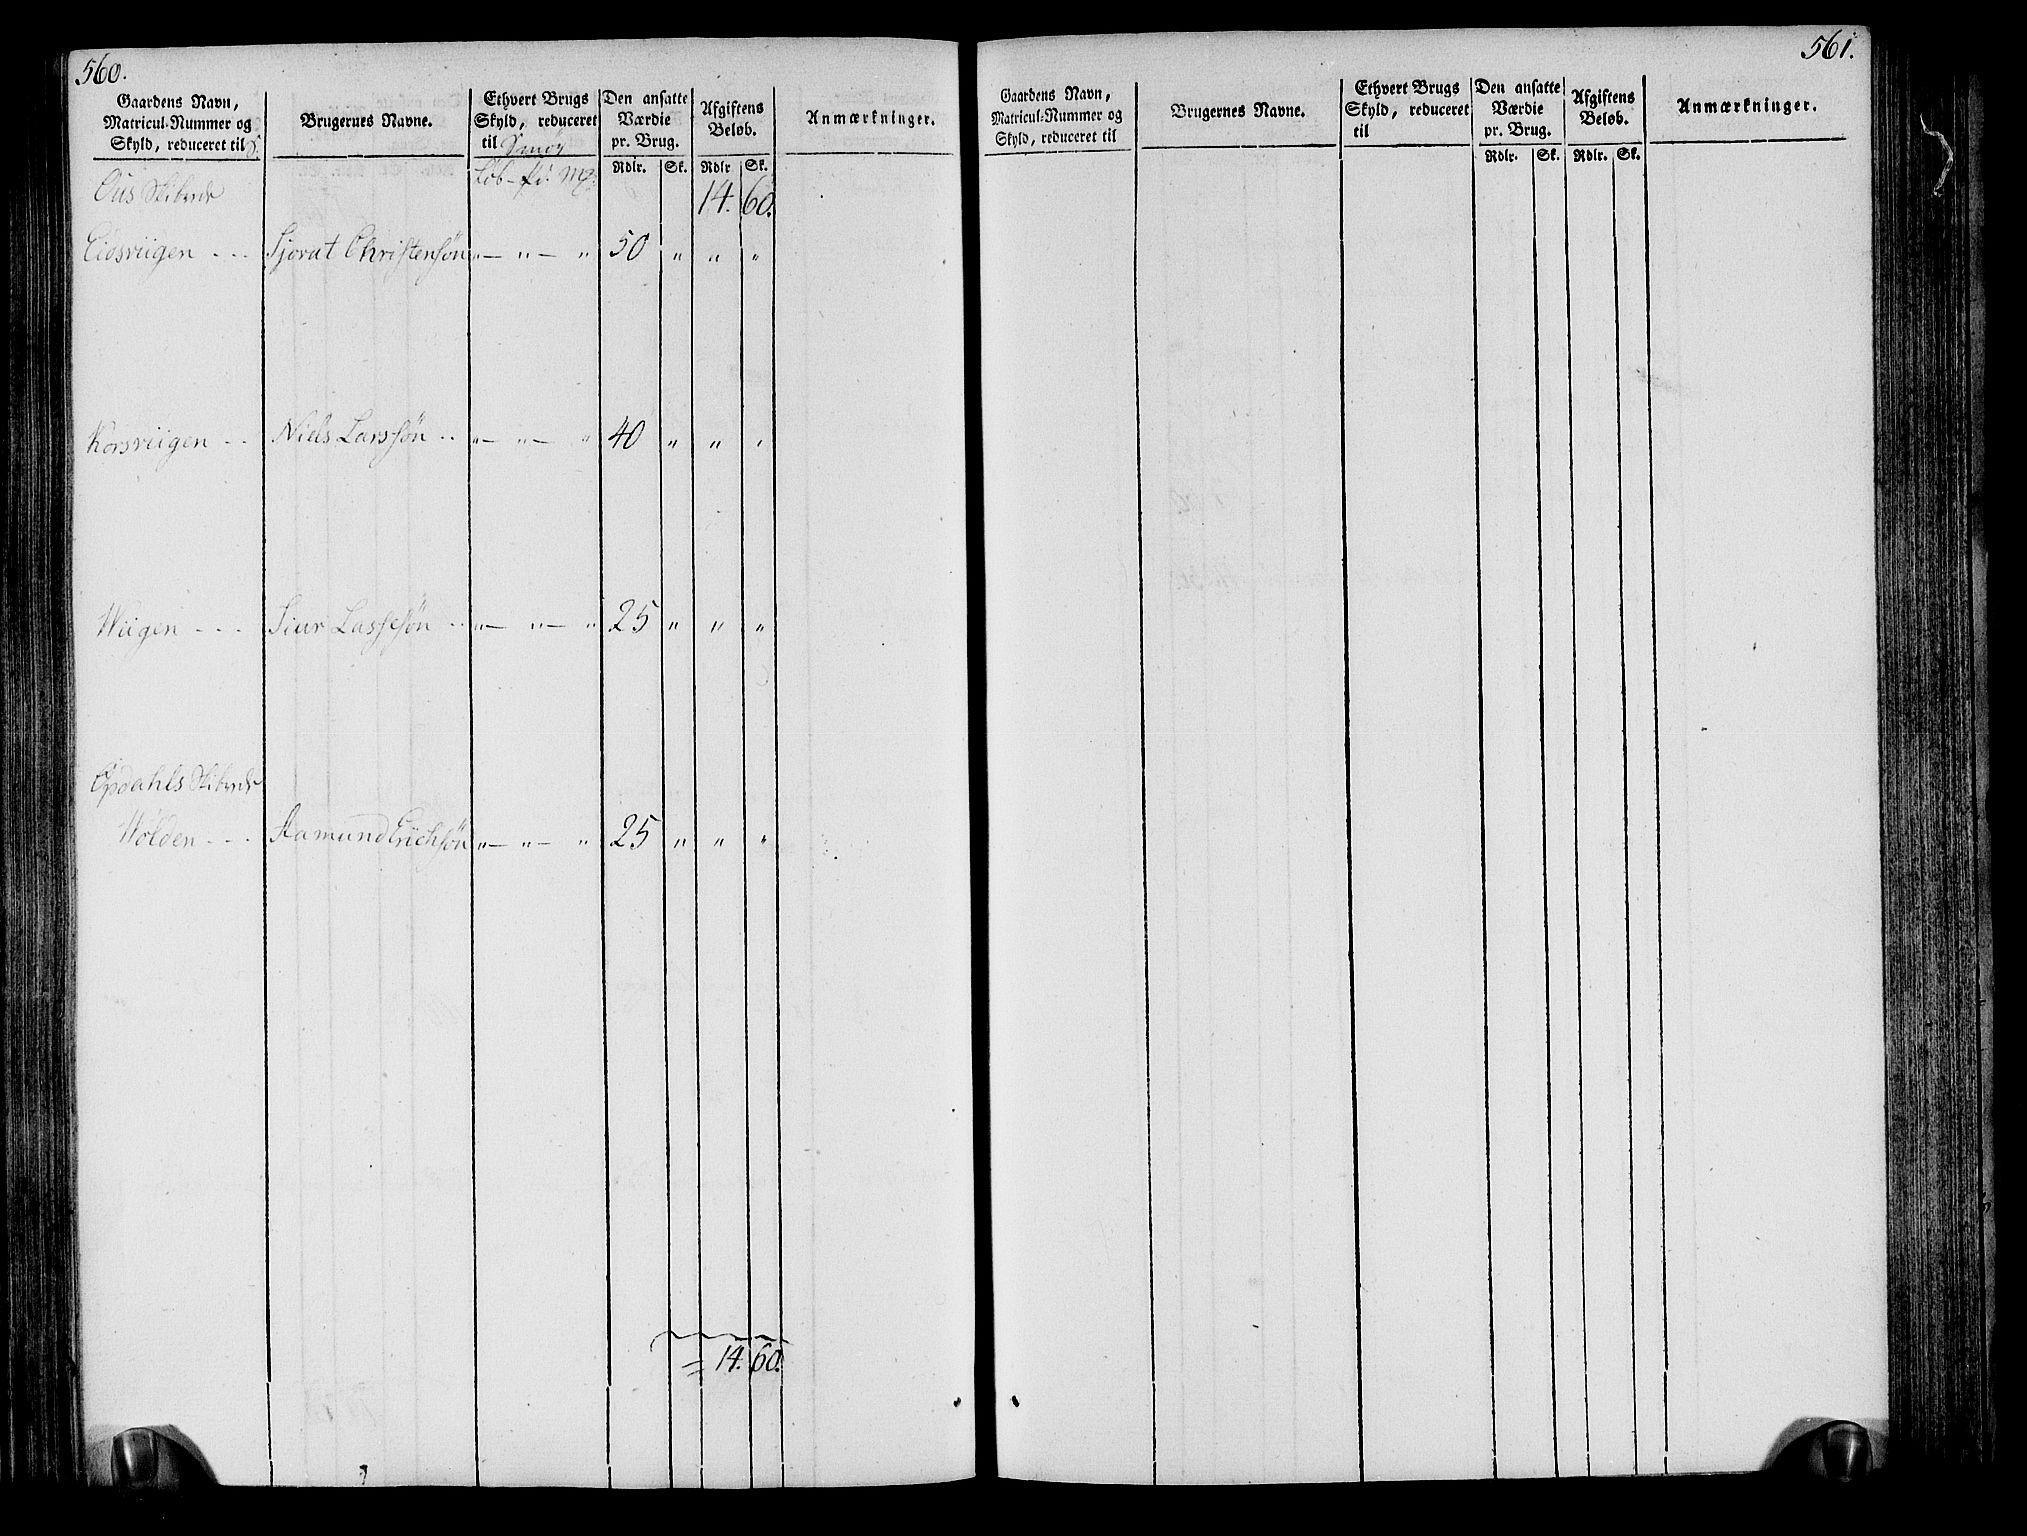 560.
Gaardens Navn,
Matricul-Nummer og
Skyld, reduceret til S.
Brugernes Navne.
Ethvert Brugs
Skyld, reduceret
til Smør
Løb - ℔: Mr:
Den ansatte
Værdie
pr. Brug.
Rdlr. Sk.
Afgiftens
Beløb.
Rdlr Sk.
Anmærkninger.
Ous Skibrede 14. 60.
Eidsviigen - - - Sjovat Christensøn „ — „ — „ 50 „ „ „
Korsviigen - - Niels Larssøn - - „ — „ — „ 40 „ „ „
Wiigen - - - Siur Lassesøn - - „ — „ — „ 25 „ „ „
Opdahls Skibrede
Wolden - - - Aamund Erichsøn „ — „ — „ 25 „ „ „
= 14. 60.
561.
Gaardens Navn,
Matricul-Nummer og
Skyld, reduceret til
Brugernes Navne.
Ethvert Brugs
Skyld, reduceret
til
Den ansatte
Værdie
pr. Brug.
Rdlr. Sk.
Afgiftens
Beløb.
Rdlr. Sk.
Anmærkninger.